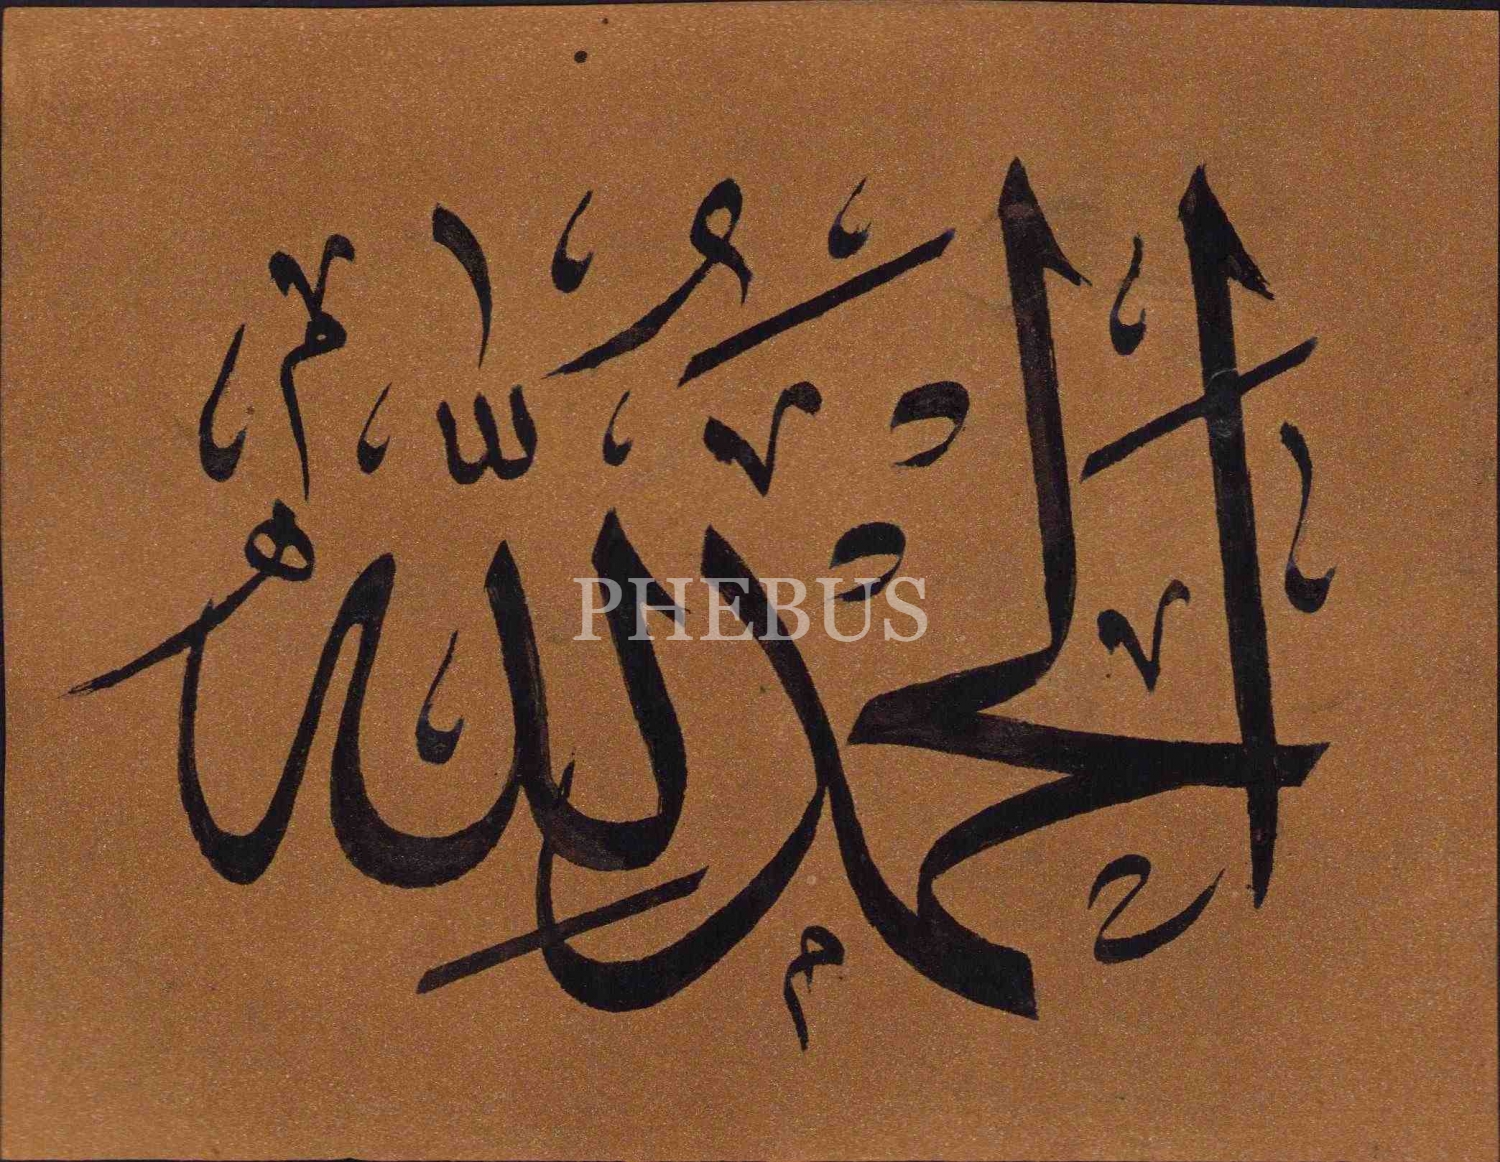 الْحَمْدُ لِلّٰهِ
PHEBUS